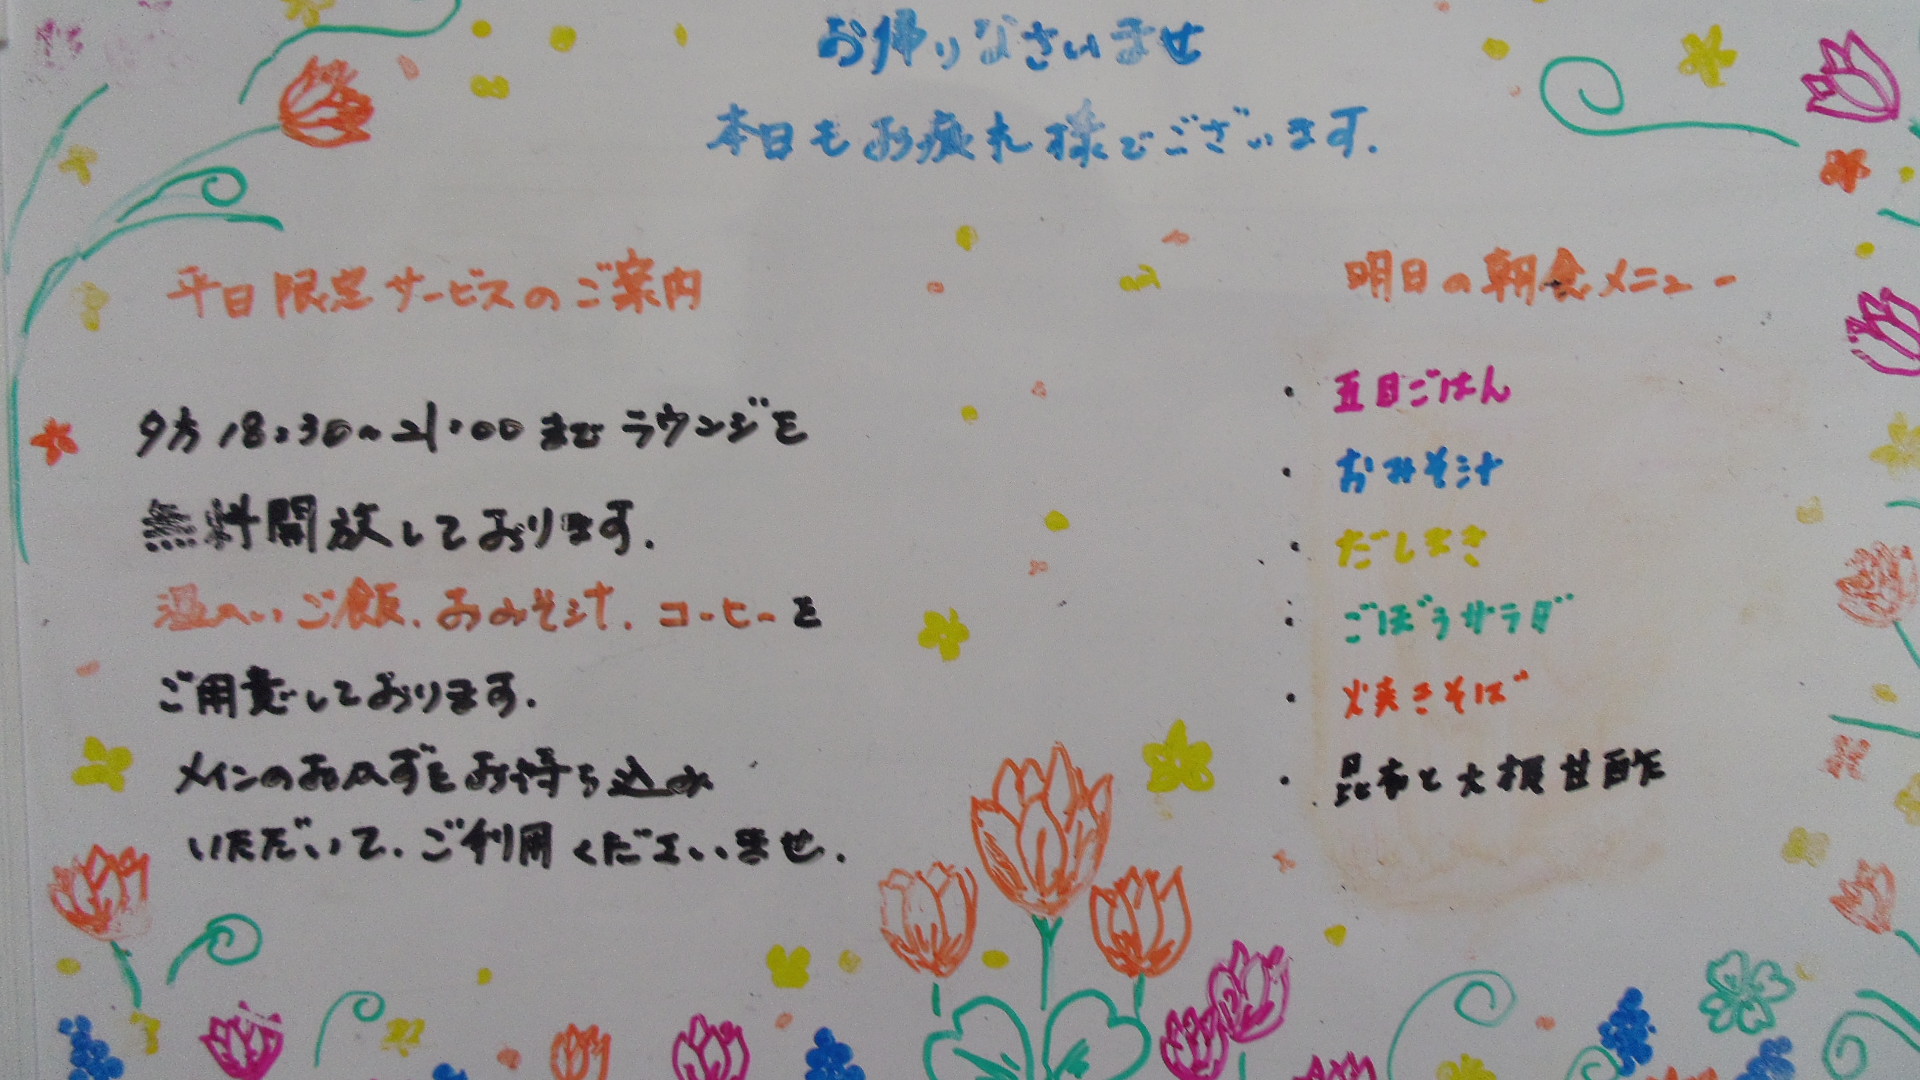 お帰りなさいませ
本日もお疲れ様でございます.
平日限定サービスのご案内
夕方18:30~21:00までラウンジを
無料開放しております.
温かいご飯.おみそ汁.コーヒーを
ご用意しております.
メインのおかずをお持ち込み
いただいて.ご利用くださいませ.
明日の朝食メニュー
・五目ごはん
・おみそ汁
・だしまき
・ごぼうサラダ
・焼きそば
・昆布と大根甘酢